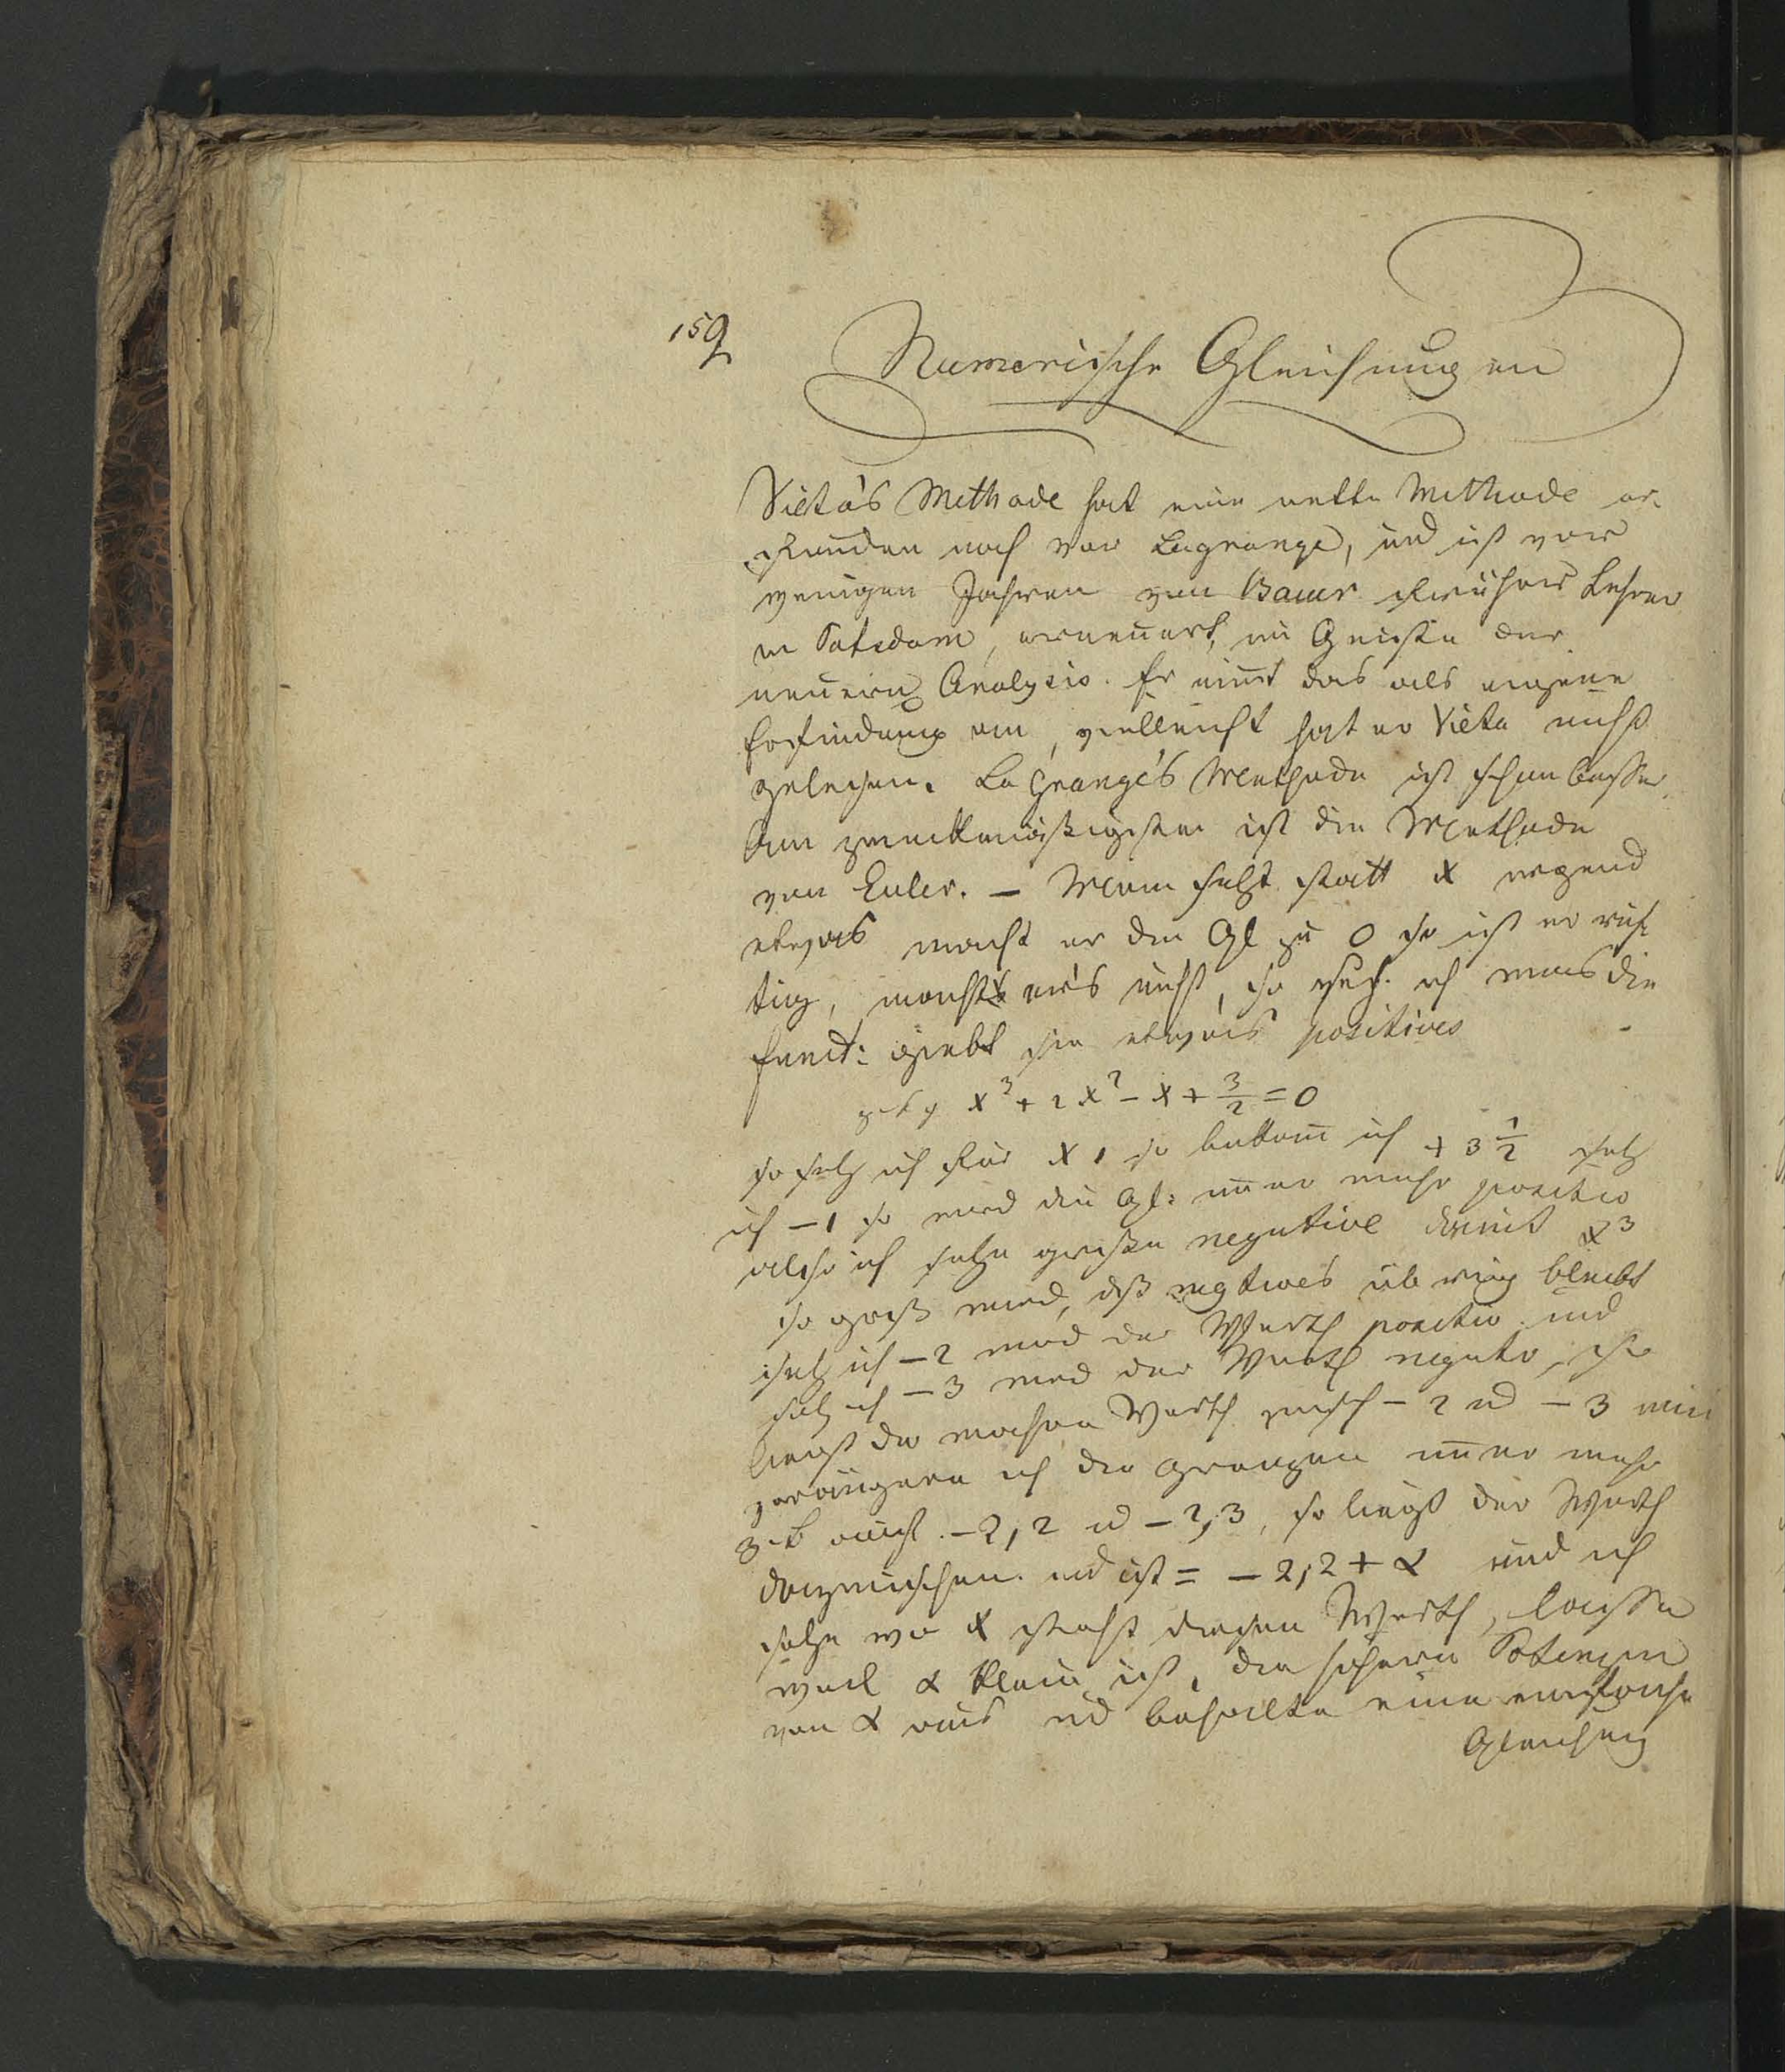 159
Numerische Gleichungen
Vieta's Methode hat eine nette Methode er-
funden noch vor Lagrange, und ist vor
wenigen Jahren von Bauer früher Lehrer
in Potsdam, erneuert, im Geiste der
neuern Analysis. Er nimt das als eigene
Erfindung an, vielleicht hat er Vieta nicht
gelesen. La Grange's Methode ist schon besser
Am zweckmäßigsten ist die Methode
von Euler. — Mann setzt statt x irgend
etwas macht er die Gl zu 0 so ist er rich
tig, macht er's nicht, so ich muss die
Funct: giebt sie etwas positives
x³ + 2x² − x + 3/2 = 0
so setz ich für x 1 so bekom̄ ich + 3 1/2 setz
ich −1 so wird die Gl: im̄er mehr positiv
also ich setze große negative damit x³
so groß wird, dß negtives übrig bleibt
setz ich −2 wird der Werth positiv und
setz ich −3 wird der Werth negativ, so
liegt der wahre Werth zwisch −2 ud −3 nun
verängere ich die Grenzen im̄er mehr
z.B −2,2 ud −2,3, so liegt der Werth
dazwischen ud ist = −2,2 + α und ich
setze wo x steht diesen Werth, lasse
weil α klein ist, die höhern Potenzen
von α aus ud behalte eine einfache
Gleichung